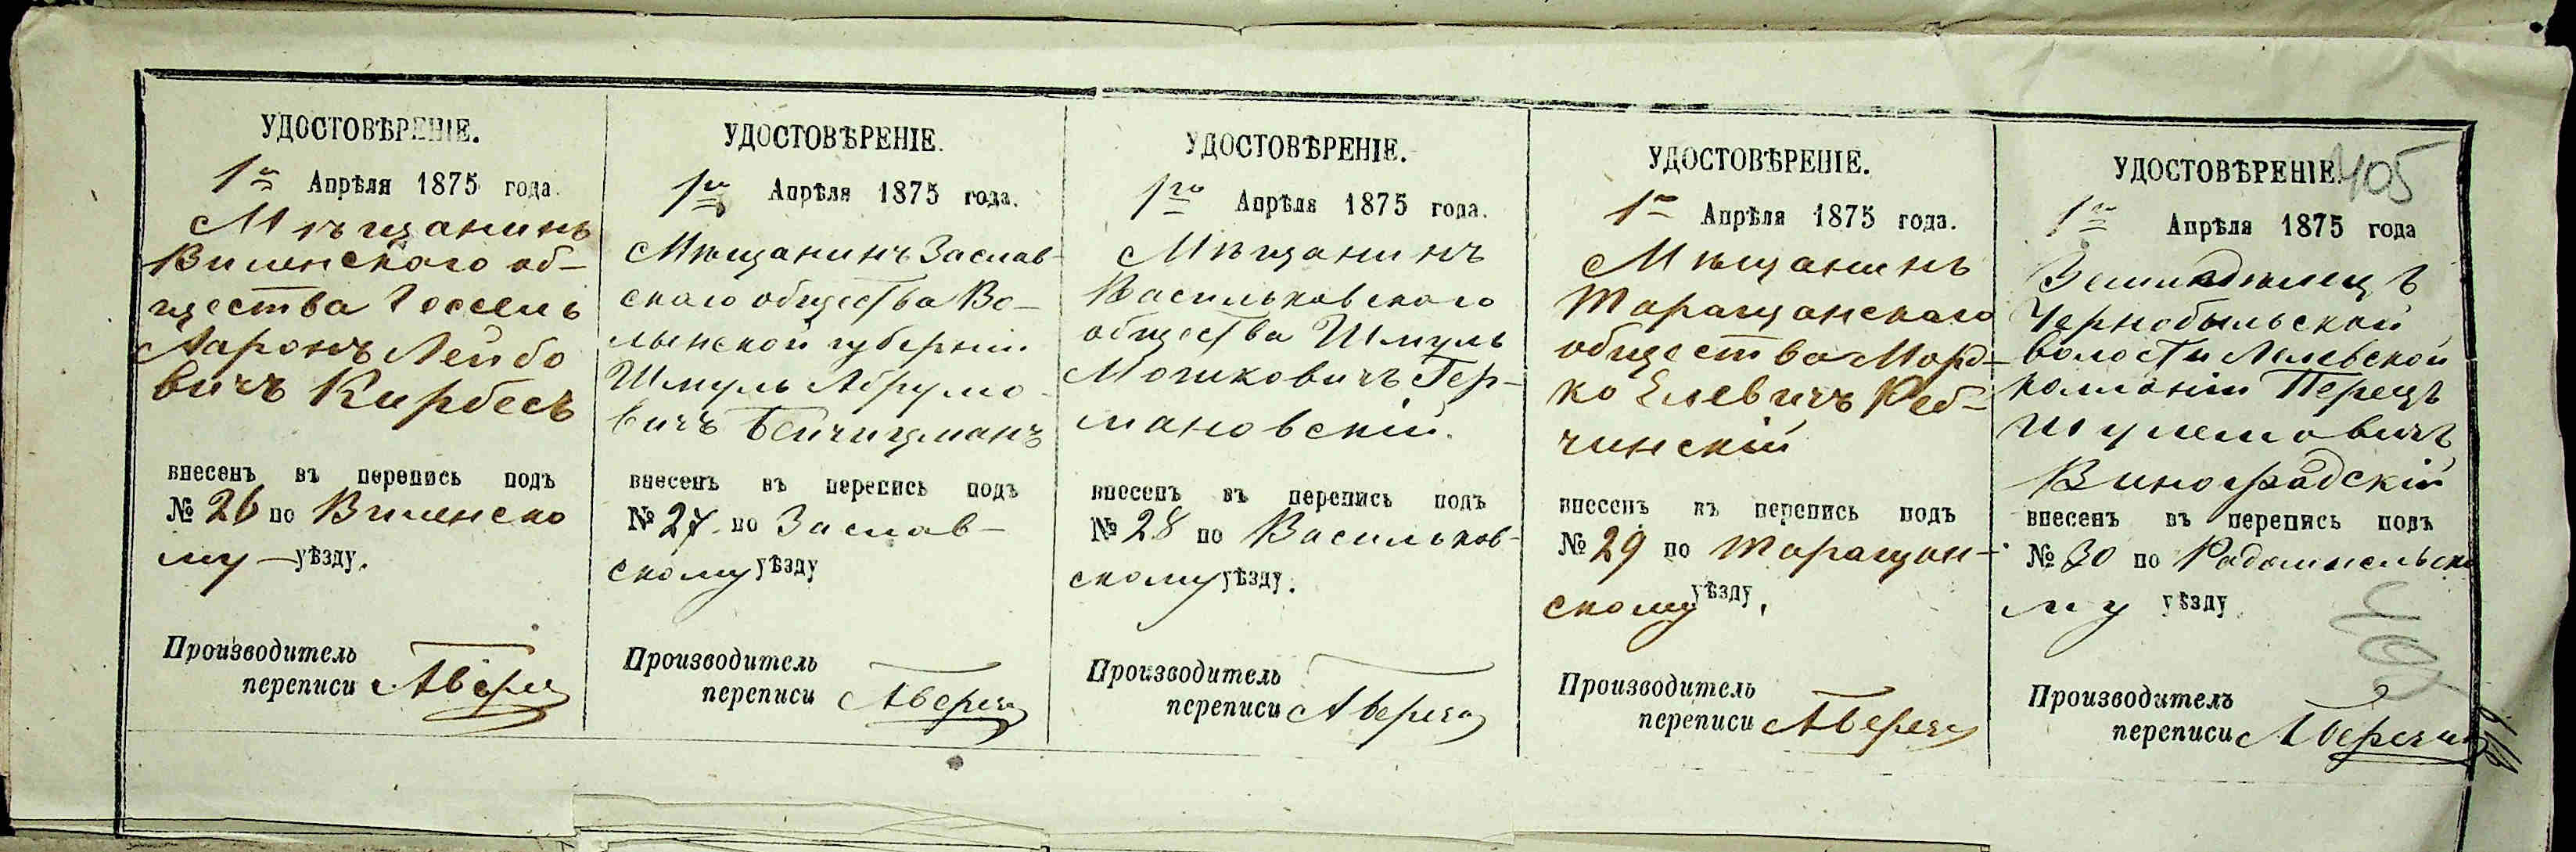 УДОСТОВѢРЕНІЕ.
1го Апрѣля 1875 года.
Мѣщанинъ
Виленскаго об-
щества Іоссель
Ааронъ Лейбо
вичъ Кирбесъ
внесенъ въ перепись подъ
№ 26 по Виленско
му уѣзду.
Производитель
переписи
УДОСТОВѢРЕНІЕ.
1го Апрѣля 1875 года.
Мѣщанинъ Заслав-
скаго общества Во-
лынской губерніи
Шмуль Абрумо
вичъ
внесенъ въ перепись подъ
№ 27 по Заслав-
скому уѣзду
Производитель
переписи
УДОСТОВѢРЕНІЕ.
1го Апрѣля 1875 года.
Мѣщанинъ
Васильковскаго
общества Шмуль
Мошковичъ Гер-
мановскій.
внесенъ въ перепись подъ
№ 28 по Васильков-
скому уѣзду.
Производитель
переписи
УДОСТОВѢРЕНІЕ.
1го Апрѣля 1875 года.
Мѣщанинъ
Таращанскаго
общества Морд-
ко Елевичъ Реб-
чинскій
внесенъ въ перепись подъ
№ 29 по Таращан-
скому уѣзду.
Производитель
переписи
УДОСТОВѢРЕНІЕ. 405
1го Апрѣля 1875 года
Земледѣлецъ
Чернобыльской
волости
колоніи Перецъ
Шулемовичъ
Виноградскій
внесенъ въ перепись подъ
№ 30 по Радомысльско
му уѣзду
Производитель
переписи